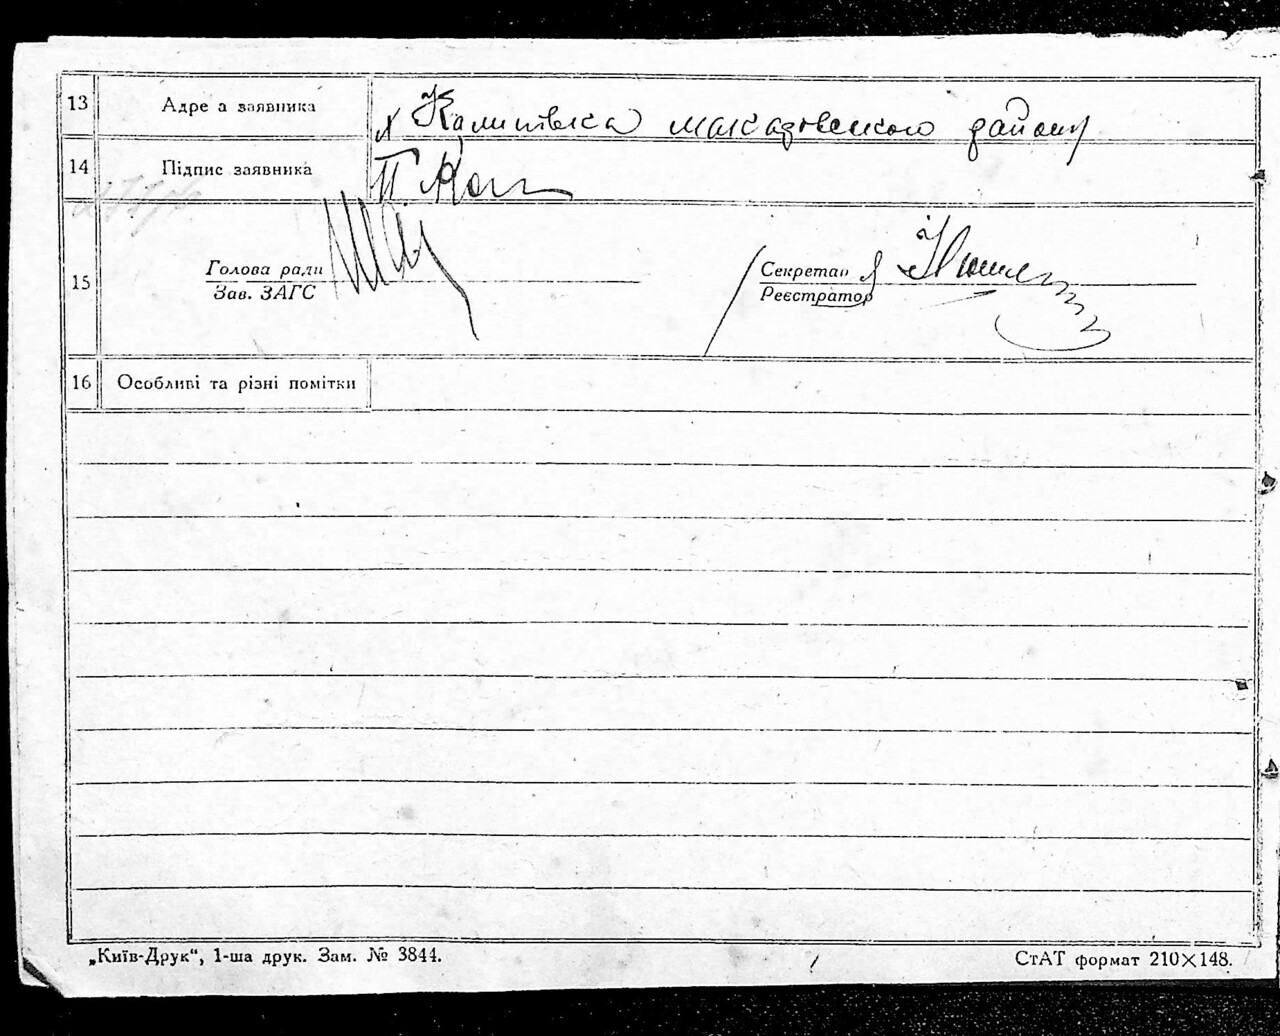 13 Адре а заявника х Калинівка макаровського району
14 Підпис заявника
15 Голова ради Секретар
Зав. ЗАГС Реєстратор
16 Особливі та різні помітки
„Київ-Друк“, 1-ша друк. Зам. № 3844. СтАТ формат 210×148.